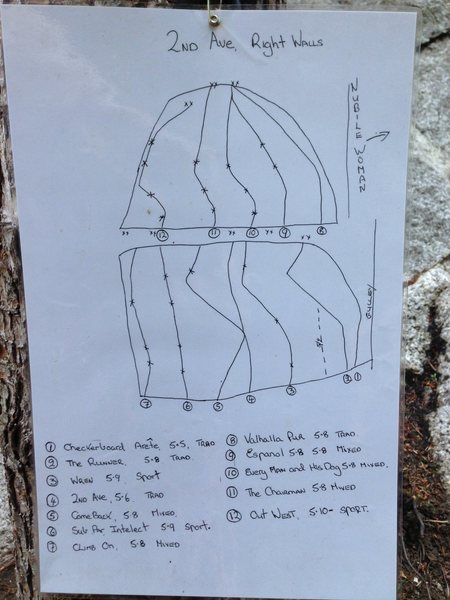 2ND AVE, RIGHT WALLS
NUBILE WOMAN
XX XX
XX
XX XX XX XX XX
12 11 10 9 8
GULLEY
7 6 5 4 3 2 1
1 CHECKERBOARD ARÊTE, 5.5, TRAD
2 THE RUNNER. 5.8 TRAD.
3 WREN 5.9 SPORT
4 2ND AVE, 5.6 TRAD
5 COME BACK, 5.8 MIXED
6 SUB PAR INTELECT 5.9 SPORT.
7 CLIMB ON, 5.8 MIXED
8 VALHALLA PUR 5.8 TRAD.
9 ESPANOL 5.8 5.8 MIXED
10 EVERY MAN AND HIS DOG 5.8 MIXED.
11 THE CHAIRMAN 5.8 MIXED
12 OUT WEST, 5.10- SPORT.